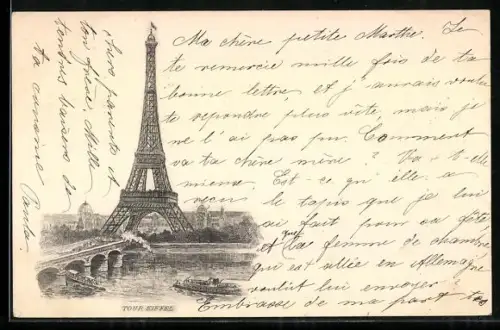 Ma chère petite Marthe. Je
te remercie mille fois de ta
bonne lettre, et j'aurais voulu
te repondre plus vite, mais je
ne l'ai pas pu. Comment
va ta chère mère? Va-t-elle
mieux. Est-ce qu'elle a
reçu le tapis que je lui
ai fait pour sa fête
et que
la femme de chambre
qui est allée en Allemagne
voulut lui envoyer?
Embrasse de ma part tes
chers parents et
ton frère. Mille
tendres baisers de
ta cousine
Paula
TOUR EIFFEL